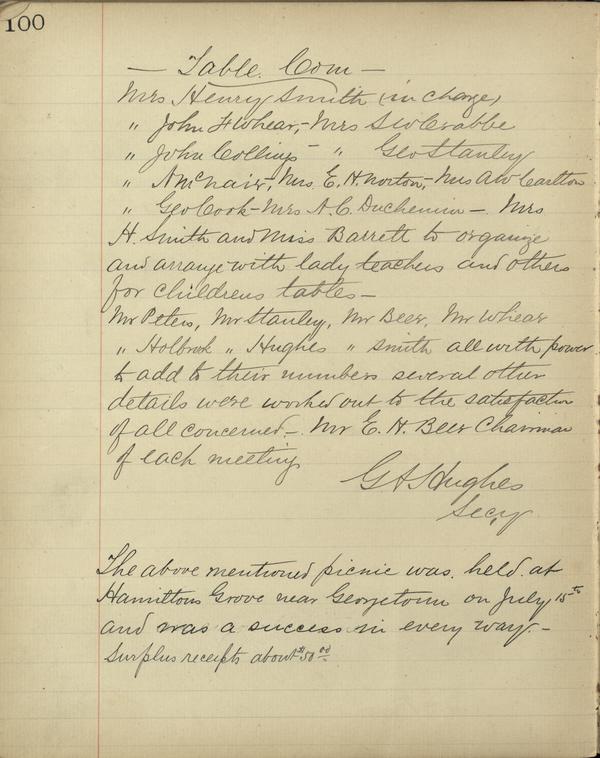 100
— Table Com —
Mrs Henry Smith (in charge)
" John F Whear, - Mrs S W Crabbe
" John Collings - " Geo Stanley
" A McNair, Mrs. E. H. Norton, - Mrs A W Carlton
" Geo Cook - Mrs A. C. Duchemin - Mrs
H. Smith and Miss Barrett to organize
and arrange with lady teachers and others
for childrens tables -
Mr Peters, Mr Stanley, Mr Beer, Mr Whear
" Holbrook " Hughes " Smith all with power
to add to their numbers several other
details were worked out to the satisfaction
of all concerned. - Mr E. H. Beer Chairman
of each meeting
G A Hughes
Secy
The above mentioned picnic was held at
Hamiltons Grove near Georgetown on July 15th
and was a success in every way. -
Surplus receipts about $50 00